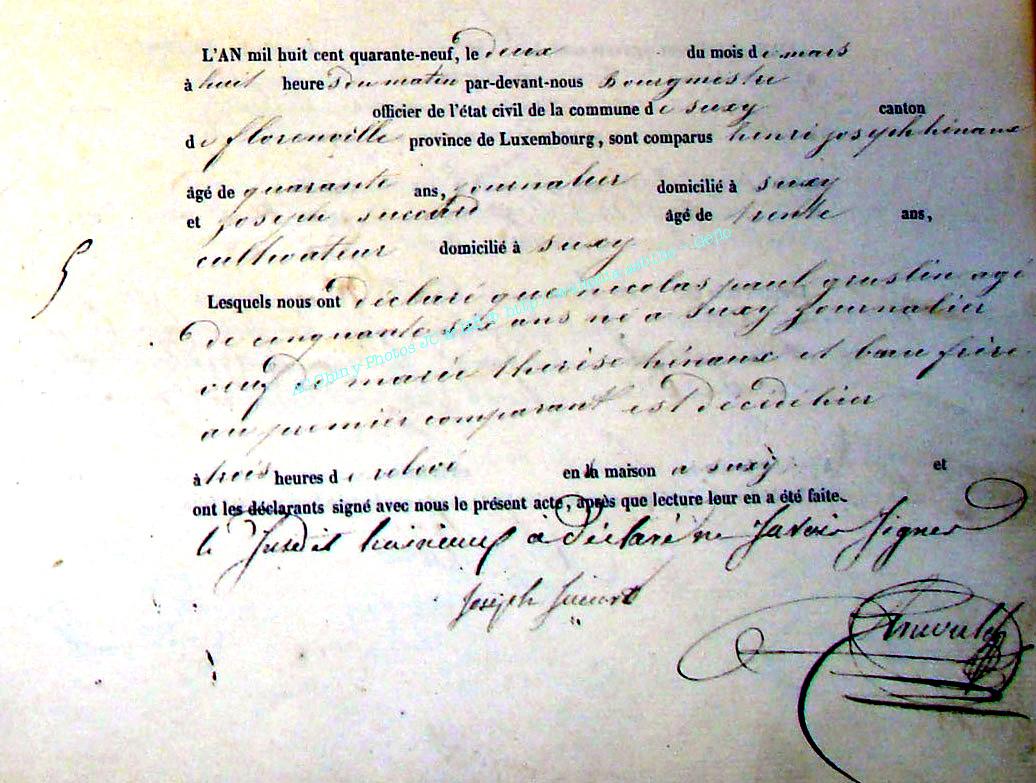 L'AN mil huit cent quarante-neuf, le deux du mois de mars
à huit heures du matin par-devant-nous Bourgmestre
officier de l'état civil de la commune de suxy canton
de florenville province de Luxembourg, sont comparus henri joseph hinaux
âgé de quarante ans, journalier domicilié à suxy
et joseph succard âgé de trente ans,
cultivateur domicilié à suxy
5
Lesquels nous ont déclaré que nicolas paul gruslin agé
de cinquante six ans né a suxy journalier
veuf de marie therise hinaux et beau frère
au premier comparant est décidé hier
à trois heures de relevé en sa maison a suxy et
ont les déclarants signé avec nous le présent acte, après que lecture leur en a été faite.
le susdit hainaux a déclaré ne savoir signer
Joseph